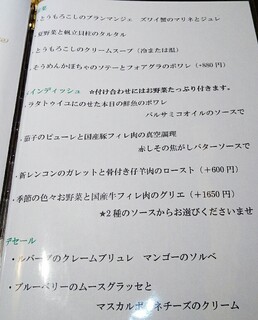 菜
・とうもろこしのブランマンジェ ズワイ蟹のマリネとジュレ
夏野菜と帆立貝柱のタルタル
・とうもろこしのクリームスープ（冷または温）
・そうめんかぼちゃのソテーとフォアグラのポワレ（+880円）
インディッシュ ☆付け合わせにはお野菜たっぷり付きます。
・ラタトゥイユにのせた本日の鮮魚のポワレ
バルサミコオイルのソースで
・茄子のピューレと国産豚フィレ肉の真空調理
赤しその焦がしバターソースで
・新レンコンのガレットと骨付き仔羊肉のロースト（+600円）
・季節の色々お野菜と国産牛フィレ肉のグリエ（+1650円）
★2種のソースからお選びくださいませ
デセール
・ルバーブのクレームブリュレ マンゴーのソルベ
・ブルーベリーのムースグラッセと
マスカルポーネチーズのクリーム